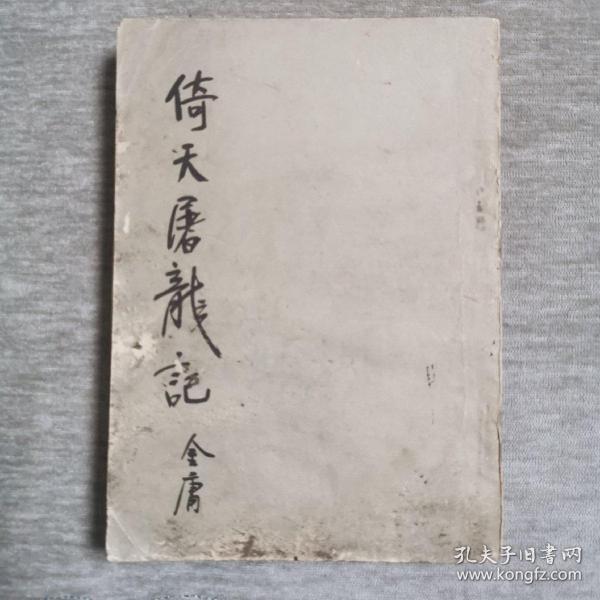 倚天屠龍記
金庸
孔夫子旧書网
www.kongfz.com